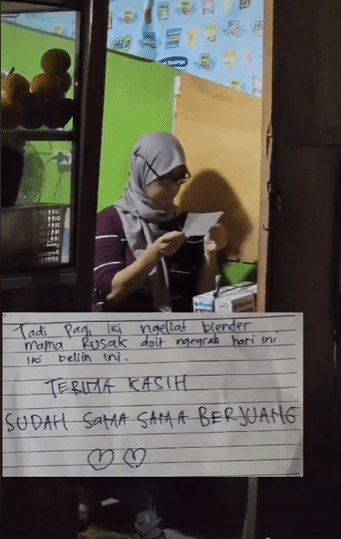 HiLo
Tadi pagi Iki ngeliat blender
mama Rusak doit ngegrab hari ini
Iki beliin ini.
TERIMA KASIH
SUDAH SAMA SAMA BERJUANG